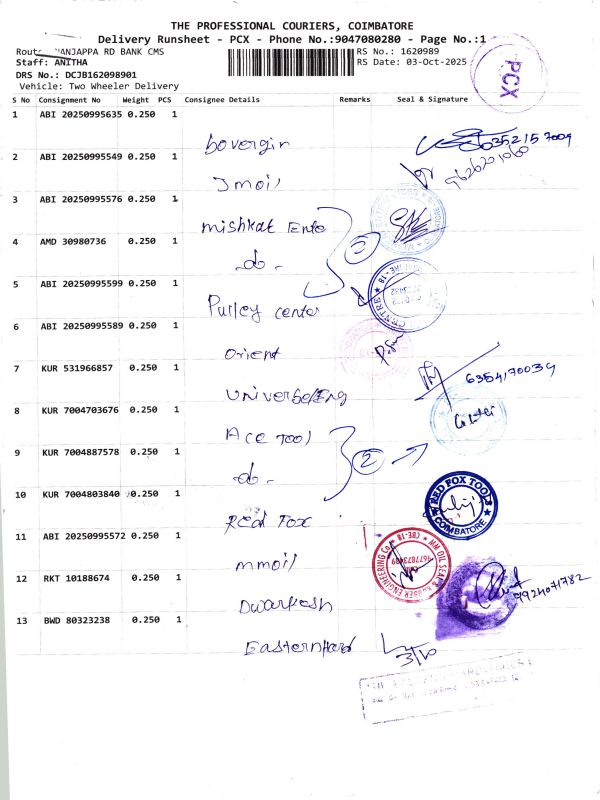 THE PROFESSIONAL COURIERS, COIMBATORE
Delivery Runsheet - PCX - Phone No.:9047080280 - Page No.:1
NJAPPA RD BANK CMS
RS No.: 1620989
Staff: ANITHA
RS Date: 03-Oct-2025
DRS No.: DCJB162098901
Vehicle: Two Wheeler Delivery
PCX
S No Consignment No Weight PCS Consignee Details Remarks Seal & Signature
1 ABI 20250995635 0.250 1
bovergin
6352157009
2 ABI 20250995549 0.250 1
Jmoil
9626201060
3 ABI 20250995576 0.250 1
mishkat Ente
4 AMD 30980736 0.250 1
-do-
2
5 ABI 20250995599 0.250 1
Pulley center
6 ABI 20250995589 0.250 1
orient
7 KUR 531966857 0.250 1
6354170039
8 KUR 7004703676 0.250 1
Ace Tool
9 KUR 7004887578 0.250 1
-do-
2
10 KUR 7004803840 0.250 1
Red Fox
RED FOX TOOLS
COIMBATORE
11 ABI 20250995572 0.250 1
mmoil
MM OIL SEAL & RUBBER ENGINEERING Co. CBE-18
9677073409
12 RKT 10188674 0.250 1
Dwarkesh
9924071782
13 BWD 80323238 0.250 1
Easternhard
3/10